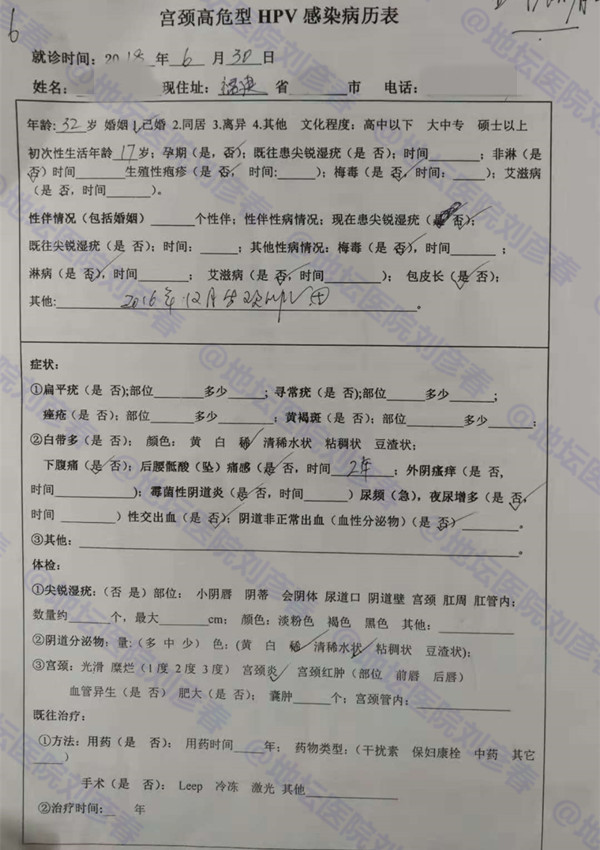 6
宫颈高危型 HPV 感染病历表
就诊时间：2018 年 6 月 30 日
姓名：　现住址：福建 省　市　电话：
年龄: 32 岁 婚姻 1.已婚 2.同居 3.离异 4.其他　文化程度：高中以下　大中专　硕士以上
初次性生活年龄 17 岁；孕期（是，否）；既往患尖锐湿疣（是 否）；时间______；非淋（是
否）时间______生殖性疱疹（是 否，　时间:______）；梅毒（是 否，时间：______）；艾滋病
（是 否，时间______）。
性伴情况（包括婚姻）______个性伴；性伴性病情况：现在患尖锐湿疣（是 否）；
既往尖锐湿疣（是 否）；时间：______；其他性病情况：梅毒（是 否），时间______；
淋病（是 否），时间______；　艾滋病（是 否，时间______）；　包皮长（是 否）；
其他: 2016年12月发现HPV
症状：
①扁平疣（是 否）;部位______多少______；寻常疣（是 否）;部位______多少______；
痤疮（是 否）；部位______多少______；黄褐斑（是 否）；部位______多少______；
②白带多（是 否）：　颜色：　黄　白　稀　清稀水状　粘稠状　豆渣状；
下腹痛（是 否）；后腰骶酸（坠）痛感（是 否，时间 2年；外阴瘙痒（是 否，
时间______）；霉菌性阴道炎（是 否，时间______）尿频（急），夜尿增多（是 否，
时间______）性交出血（是 否）；阴道非正常出血（血性分泌物）（是 否）______。
③其他：______。
体检：
①尖锐湿疣：（否 是）部位：　小阴唇　阴蒂　会阴体　尿道口　阴道壁　宫颈　肛周　肛管内：
数量约______个，最大______cm：　颜色：淡粉色　褐色　黑色　其他：______
②阴道分泌物：量:（多 中 少）　色:（黄　白　稀　清稀水状　粘稠状　豆渣状）；
③宫颈：光滑　糜烂（1 度 2 度 3 度）　宫颈炎　宫颈红肿（部位　前唇　后唇）
血管异生（是 否）　肥大（是 否）；　囊肿______个；宫颈管内：______
既往治疗：
①方法：用药（是　否）；　用药时间____年；　药物类型：（干扰素　保妇康栓　中药　其它
____）
手术（是　否）：　Leep　冷冻　激光　其他______
②治疗时间：_　年
@地坛医院刘彦春